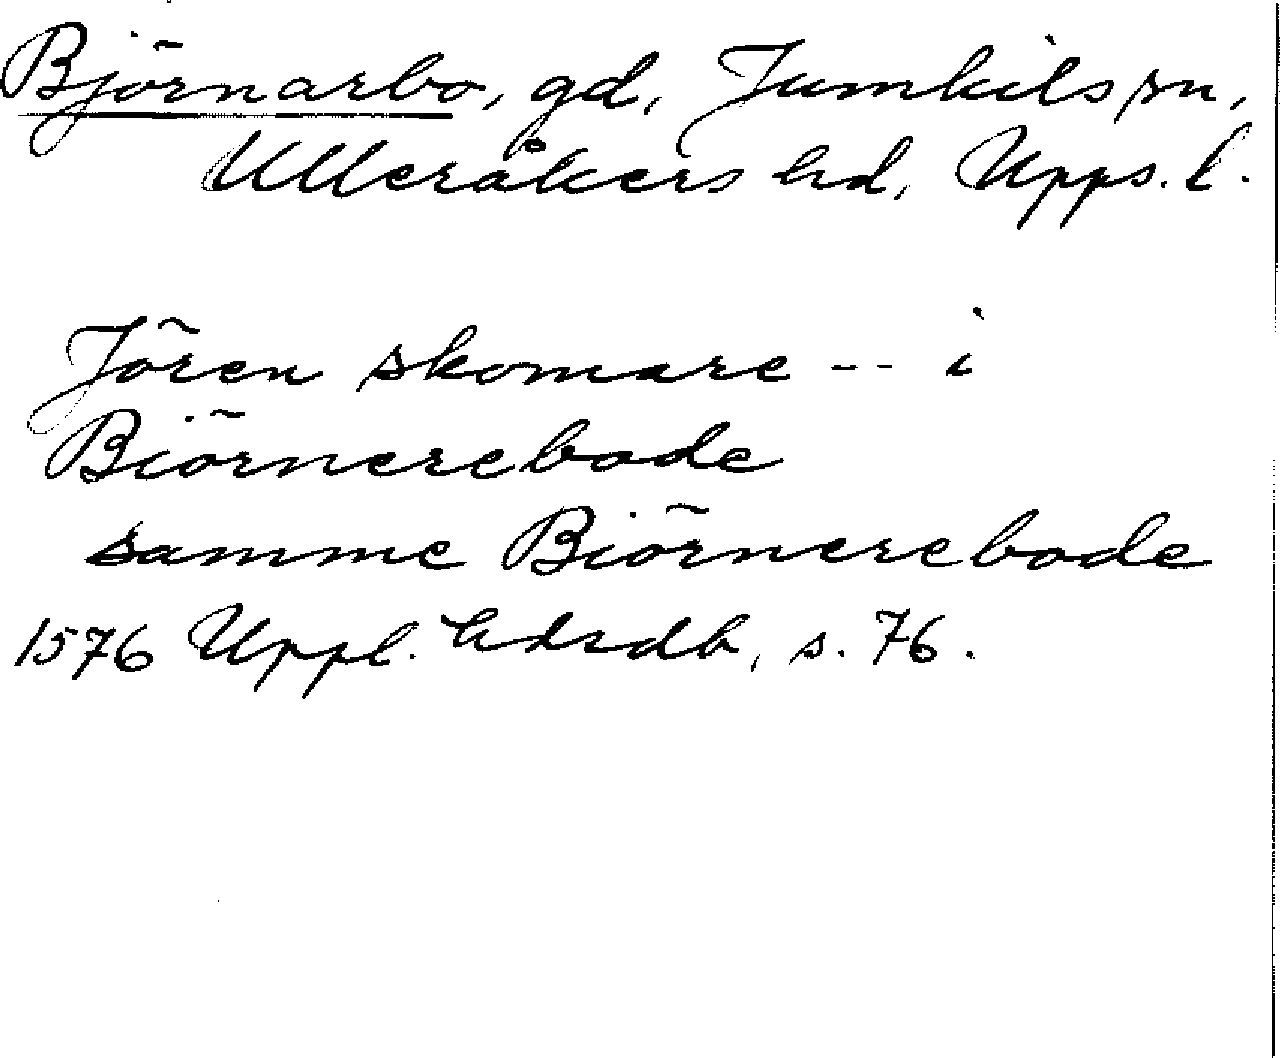 Björnarbo, gd, Jumkils sn,
Ulleråkers hd, Upps. l.
Jören skomare -- i
Biörnerebode
samme Biörnerebode
1576 Uppl. hdrdb, s. 76.